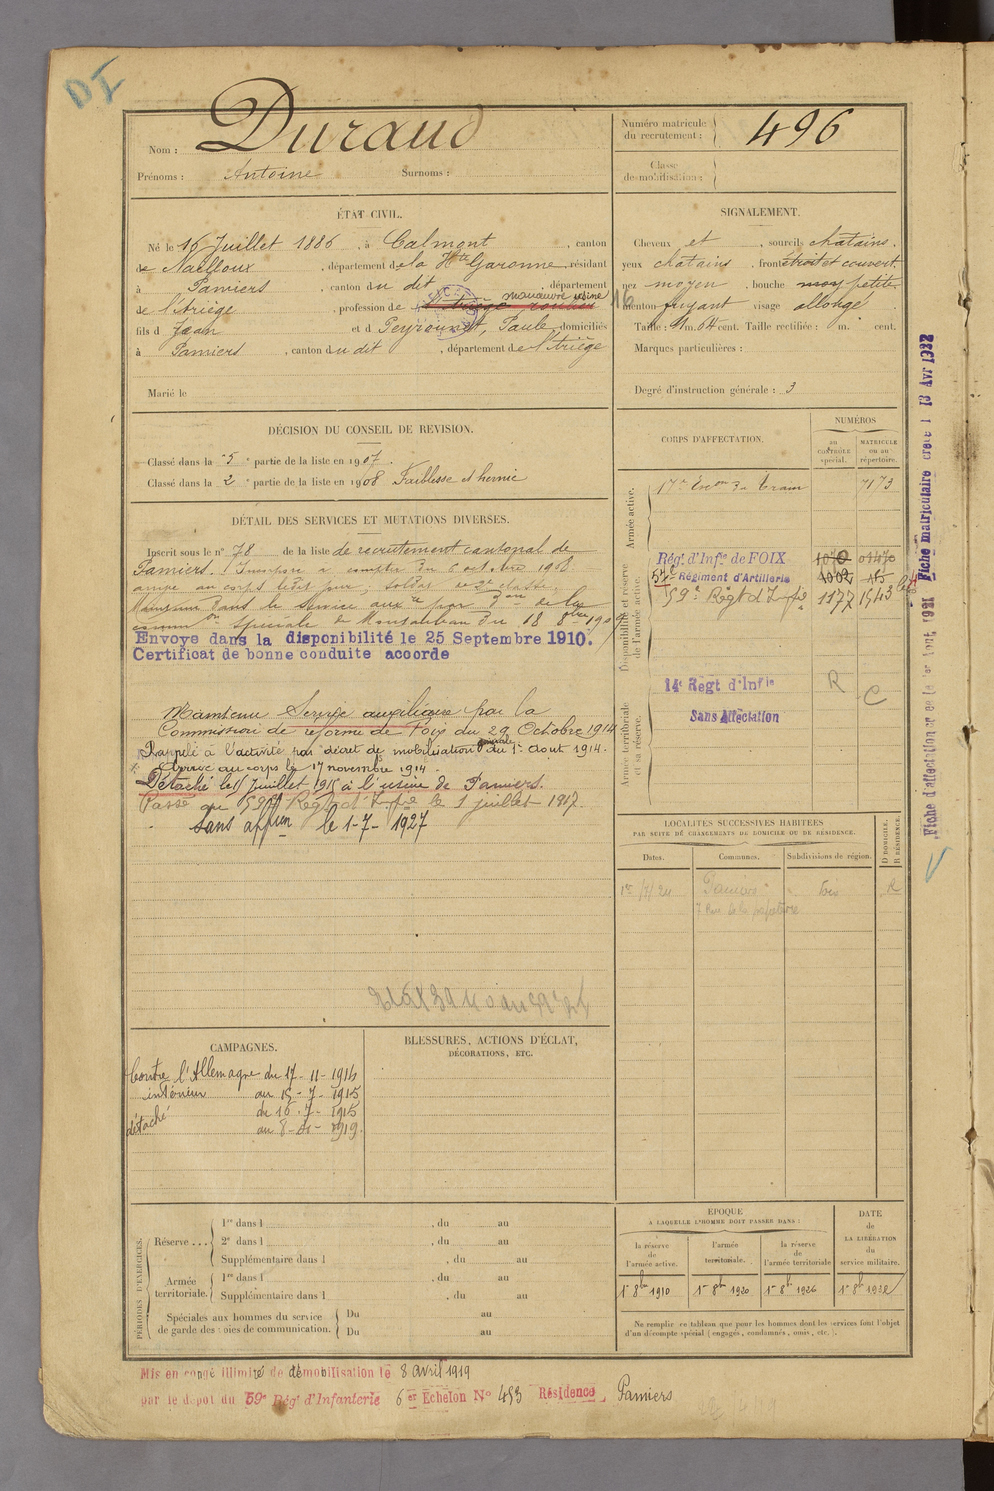 DI
Nom : Durand
Numéro matricule du recrutement : 496
Prénoms : Antoine Surnoms :
Classe de mobilisation :
ÉTAT CIVIL.
Né le 16 Juillet 1886, à Calmont, canton
de Nailloux, département de la Hte Garonne, résidant
à Pamiers, canton du dit, département
de l'Ariège, profession de manœuvre usine
fils d Jean et d Peyronnet, Paule, domiciliés
à Pamiers, canton du dit, département de l'Ariège
Marié le
SIGNALEMENT.
Cheveux et, sourcils chatains.
yeux chatains, front étroit et couvert.
nez moyen, bouche petite
menton fuyant visage allongé
Taille : 1 m. cent. Taille rectifiée : m. cent.
Marques particulières :
Degré d'instruction générale : 3
DÉCISION DU CONSEIL DE REVISION.
Classé dans la 5e partie de la liste en 1907.
Classé dans la 2e partie de la liste en 1908 Faiblesse et hernie
DÉTAIL DES SERVICES ET MUTATIONS DIVERSES.
Inscrit sous le n° 78 de la liste de recrutement cantonal de
Pamiers. Inscrit à compter du 6 octobre 1908
arrivé au corps ledit jour, soldat de 2e classe.
Maintenu dans le service auxre par de la
comm on spéciale de Montauban du 18 8bre 1909
Envoyé dans la disponibilité le 25 Septembre 1910.
Certificat de bonne conduite accordé
Maintenu Service auxiliaire par la
Commission de réforme de Foix du 29 Octobre 1914
Rappelé à l'activité par décret de mobilisation générale du 1er Aout 1914.
Arrivé au corps le 17 novembre 1914.
Détaché le 15 Juillet 1915 à l'usine de Pamiers.
Passé au 59e Régt d'Infie le 1 juillet 1917.
Sans affon le 1-7-1927
CORPS D'AFFECTATION.
NUMÉROS
au CONTRÔLE spécial.
MATRICULE ou au répertoire.
Armée active.
17e Escon du Train 7173
Disponibilité et réserve de l'armée active.
Rég. d'Infie de FOIX 1070 01470
57e Régiment d'Artillerie 1002
59e Régt d'Infie 1177 1543
Armée territoriale et sa réserve.
14e Régt d'Infie R C
Sans Affectation
Fiche matriculaire créée l 13 Avr 1922
Fiche d'affectation créée le 1er Aout 1921
LOCALITÉS SUCCESSIVES HABITÉES
PAR SUITE DE CHANGEMENTS DE DOMICILE OU DE RÉSIDENCE.
Dates. Communes. Subdivisions de région. D DOMICILE. R RÉSIDENCE.
Pamiers Foix R
7 Rue de la
CAMPAGNES.
Contre l'Allemagne du 17-11-1914
intérieur au 15-7-1915
détaché du 16-7-1915
au 8-4-1919.
BLESSURES, ACTIONS D'ÉCLAT,
DÉCORATIONS, ETC.
PÉRIODES D'EXERCICES.
Réserve ... 1re dans l , du au
2e dans l , du au
Supplémentaire dans l , du au
Armée territoriale. 1re dans l , du au
Supplémentaire dans l , du au
Spéciales aux hommes du service de garde des voies de communication. Du au
Du au
ÉPOQUE
À LAQUELLE L'HOMME DOIT PASSER DANS :
la réserve de l'armée active.
l'armée territoriale.
la réserve de l'armée territoriale
DATE de LA LIBÉRATION du service militaire.
1er 8bre 1910 1er 8bre 1920 1er 8bre 1926 1er 8bre 1932
Ne remplir ce tableau que pour les hommes dont les services font l'objet
d'un décompte spécial (engagés, condamnés, omis, etc.).
Mis en congé illimité de démobilisation le 8 avril 1919
par le dépôt du 59e Rég. d'Infanterie 6e Echelon N° 453 Résidence Pamiers